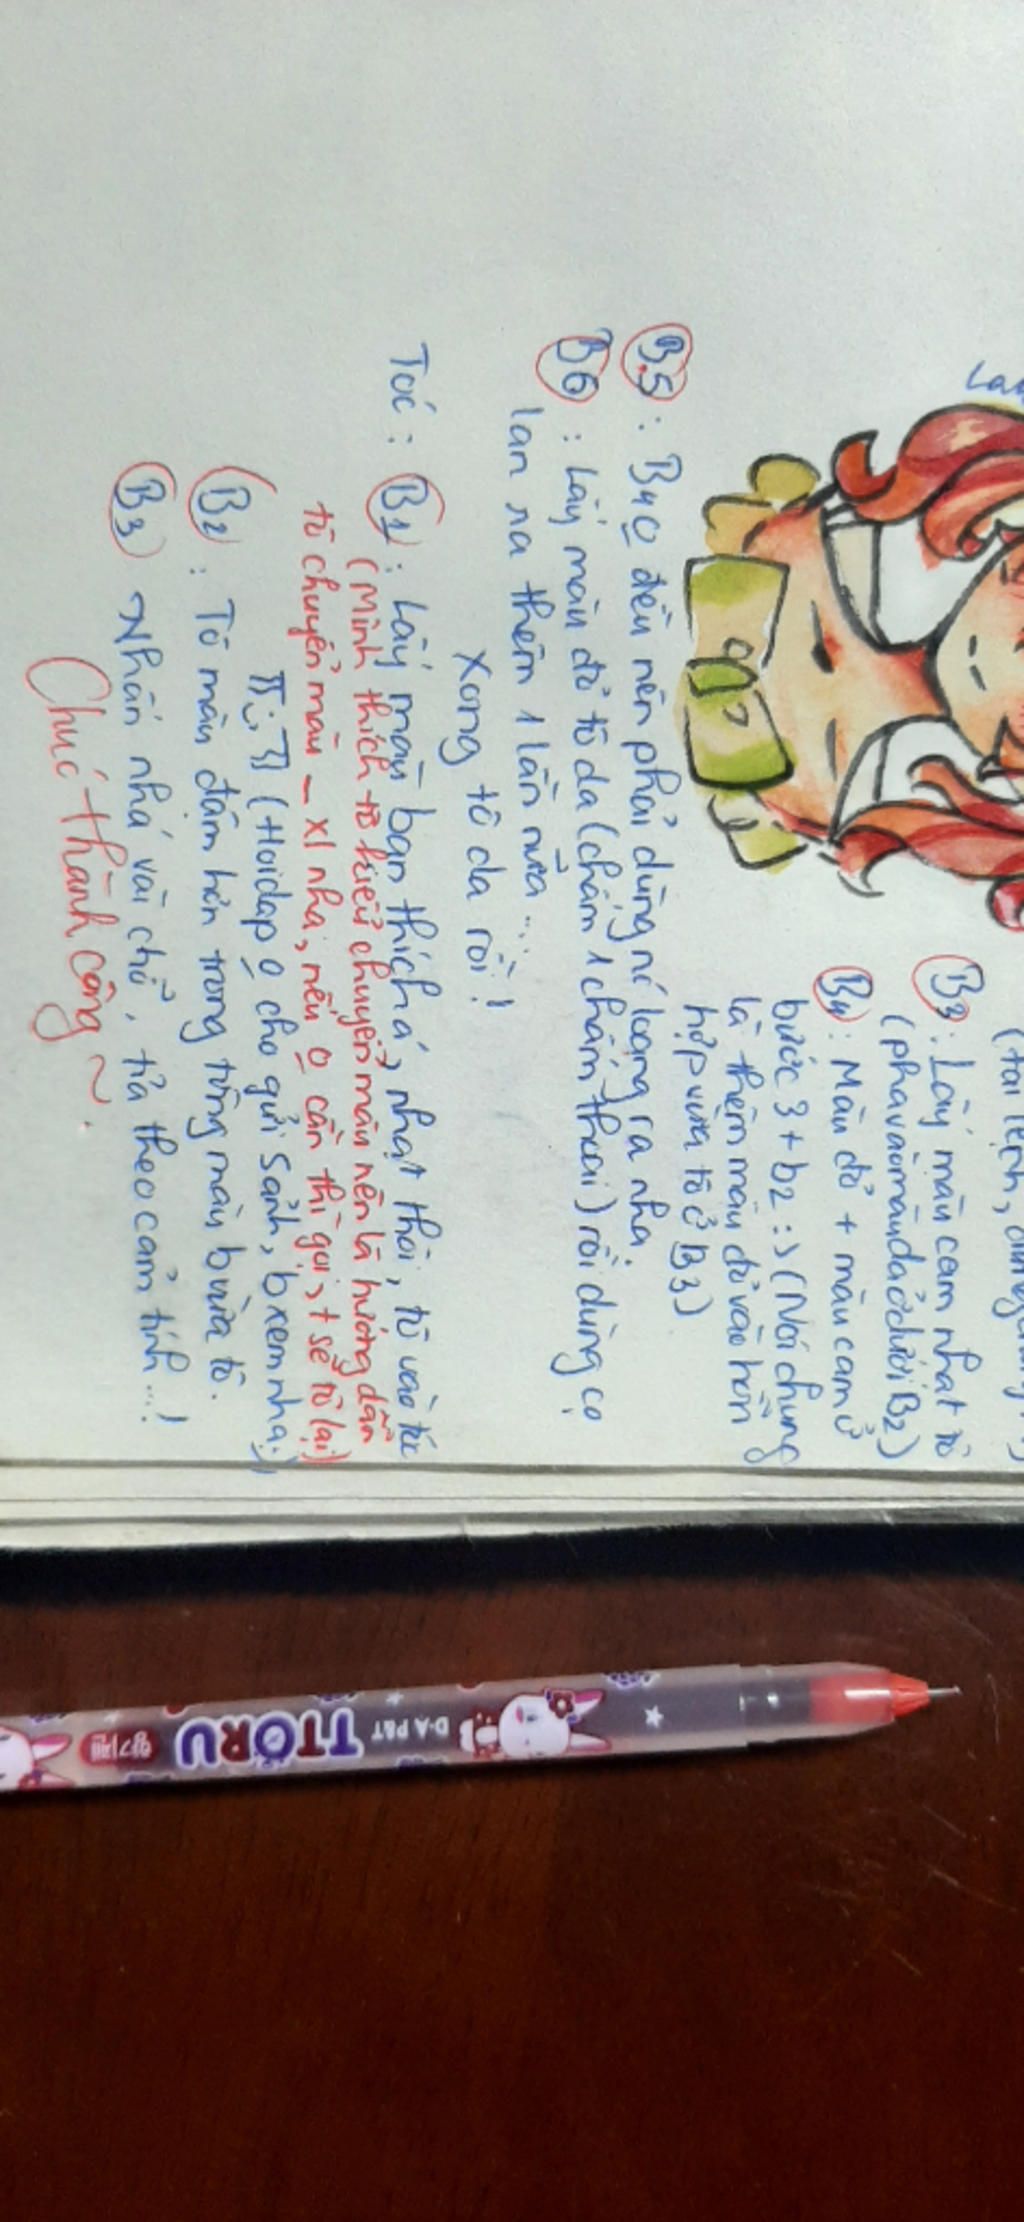 (tai lệch, đừng
B3: Lấy màu cam nhạt tô
(pha vào màu da ở dưới B2)
B4: Màu đỏ + màu cam ở
bước 3 + b2 :) (Nói chung
là thêm màu đỏ vào hỗn
hợp vừa tô ở B3)
B5: B4 đều nên phải dùng nó loang ra nha.
B6: Lấy màu đỏ tô da (chấm 1 chấm thoai) rồi dùng cọ
lan ra thêm 1 lần nữa...
Xong tô da rồi!
Tóc: B1: Lấy màu bạn thích á, nhạt thôi, tô vào tóc
(Mình thích tô kiểu chuyển màu nên là hướng dẫn
tô chuyển màu _ xl nha, nếu o cần thì gọi, t sẽ tô lại)
(Hoidap o cho gửi sảnh, b xem nha:)
B2: Tô màu đậm hơn trong từng màu b vừa tô.
B3 Nhấn nhá vài chỗ, tỉa theo cảm tính...!
Chúc thành công ~.
TTORU
D·A P&T